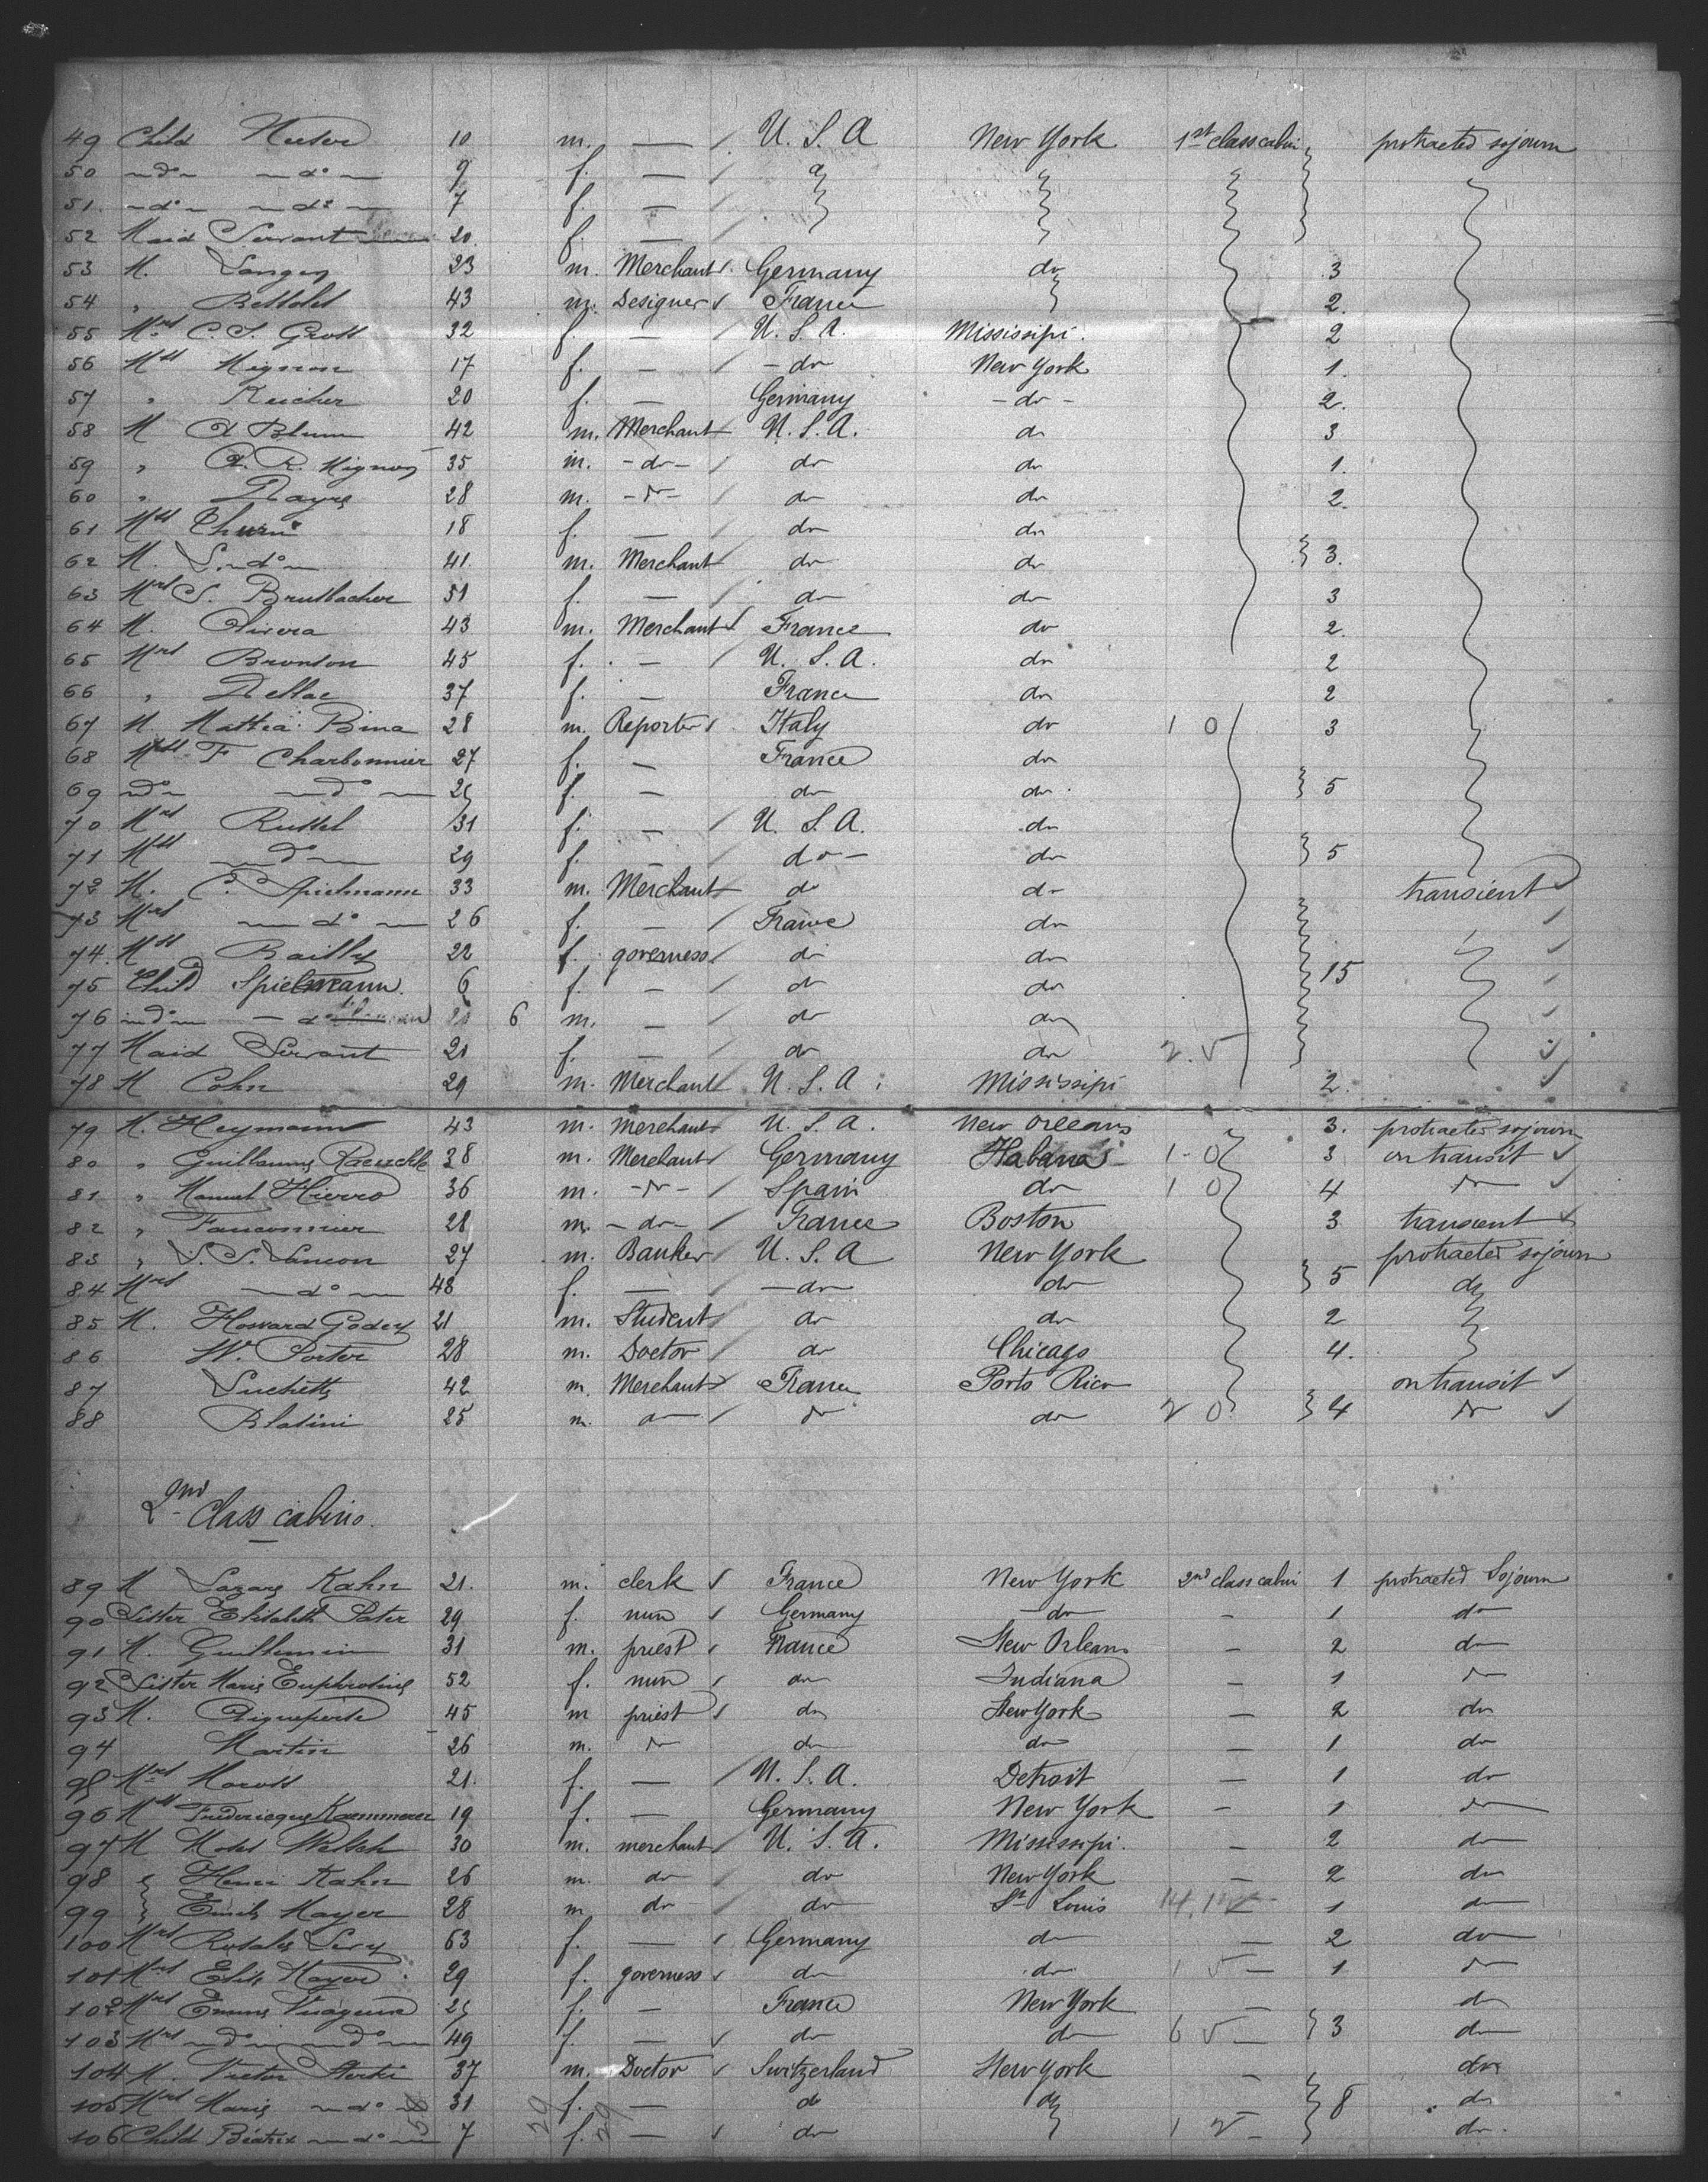 49 Child 10 m. — U. S. A New York 1st class cabin protracted sojourn
50 — do — — do — 9 f. —
51 — do — — do — 7 f. —
52 Maid Servant 20. f. —
53 M. 23 m. Merchant Germany do 3
54 " 43 m. Designer France 2.
55 Mrs C. S. 32 f. — U. S. A. Mississipi. 2
56 Mlle Mignon 17 f. — — do New York 1.
57 " Reicher 20 f. — Germany — do — 2.
58 M A Blum 42 m. Merchant U. S. A. do 3
59 " A. R. Mignon 35 m. — do — do do 1.
60 " 28 m. — do — do do 2.
61 Mlle 18 f. — do do
62 M. — do — 41. m. Merchant do do 3.
63 Mrs S. 51 f. — do do 3
64 M. Olivera 43 m. Merchant France do 2.
65 Mrs Bronson 45 f. — U. S. A. do 2
66 " 37 f. — France do 2
67 M. Mattia Bina 28 m. Reporter Italy do 1 0 3
68 Mlle F Charbonnier 27 f. — France do
69 — do — — do — f. — do do 5
70 Mrs Russel 31 f. — U. S. A. do
71 Mlle — do — 29 f. — do — do 5
72 M. C. Spielmann 33 m. Merchant do do transient
73 Mrs — do — 26 f. — France do
74. Mlle Bailly 22 f. governess do do
75 Child Spielmann. 6 f. — do do 15
76 — do — — do 6 m. — do do
77 Maid Servant 21 f. — do do 2. 5
78 M Cohn 29 m. Merchant U. S. A. Mississipi 2.
79 M. Heymann 43 m. Merchant U. S. A. New Orleans 3. protracted sojourn
80 " Guillaume 38 m. Merchant Germany Habana 1 - 0 3 on transit
81 " Manuel Hierro 36 m. — do — Spain do 1 0 4 do
82 " Fauconnier 28 m. — do — France Boston 3 transient
83 " 27 m. Banker U. S. A New York protracted sojourn
84 Mrs — do — 48 f. — — do do 5 do
85 M. Howard Godey 21 m. Student do do 2
86 W. Porter 28 m. Doctor do Chicago 4.
87 Luchetti 42 m. Merchant France Porto Rico on transit
88 Blatini 25 m. do do do 2 0 4 do
2nd Class cabins.
89 M Lazare Kahn 21. m. clerk France New York 2nd class cabin 1 protracted Sojourn
90 Sister Elisabeth 29 f. nun Germany — do — 1 do
91 M. Guillemin 31 m. priest France New Orleans — 2 do
92 Sister Marie Euphrosine 52 f. nun do Indiana — 1 do
93 M. Aigueperse 45 m priest do New York — 2 do
94 Martin 26 m. do do do — 1 do
95 Mrs 21. f. — U. S. A. Detroit — 1 do
96 Mlle Fredericque Kaemmerer 19 f. — Germany New York — 1 do
97 M 30 m. merchant U. S. A. Mississipi. — 2 do
98 " Henri Kahn 26 m. do do New York — 2 do
99 Emile Mayer 28 m do do St Louis — 1 do
100 Mrs Rosalie Levy 63 f. — Germany do — 2 do
101 29 f. governess do do 1 5 — 1. do
102 f. — France New York — do
103 Mrs — do — — do — 49 f. — do do 6 5 — 3 do
104 M. Victor 37 m. Doctor Switzerland New York — do
105 Mrs Marie — do — 31 f. — do do 8 do
106 Child Béatrix — do — 7 f. — do 1 2 — do.